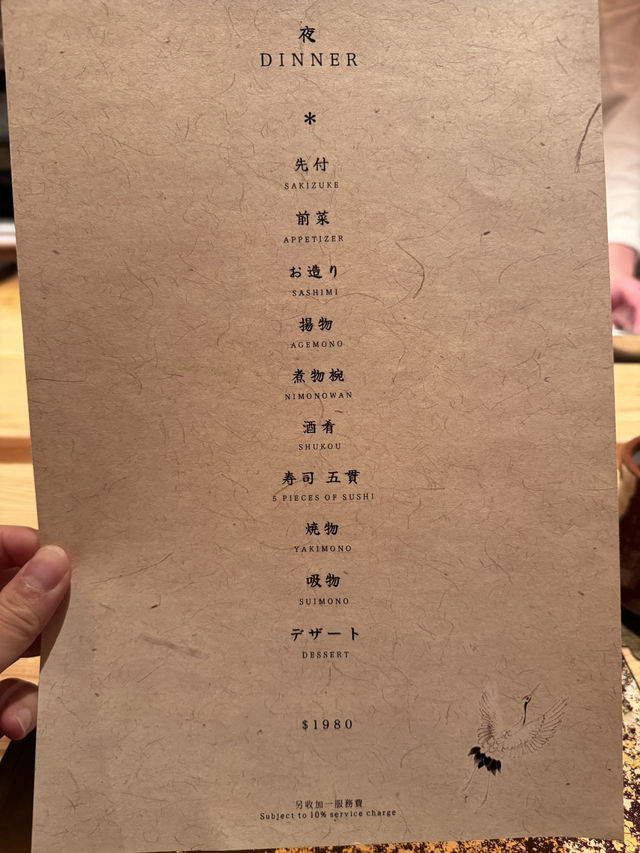 夜
DINNER
*
先付
SAKIZUKE
前菜
APPETIZER
お造り
SASHIMI
揚物
AGEMONO
煮物椀
NIMONOWAN
酒肴
SHUKOU
寿司 五貫
5 PIECES OF SUSHI
焼物
YAKIMONO
吸物
SUIMONO
デザート
DESSERT
$1980
另收加一服務費
Subject to 10% service charge